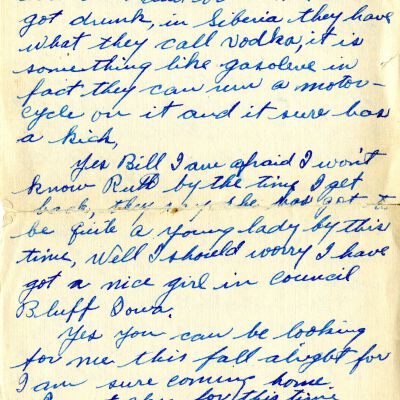 got drunk, in Siberia they have
what they call vodka, it is
something like gasolene in
fact they can run a motor-
cycle on it and it sure has
a kick,
Yes Bill I am afraid I won't
know Ruth by the time I get
back, they say she has got to
be quite a young lady by this
time, Well I should worry I have
got a nice girl in council
Bluff Iowa.
Yes you can be looking
for me this fall alright for
I am sure coming home.
for this time